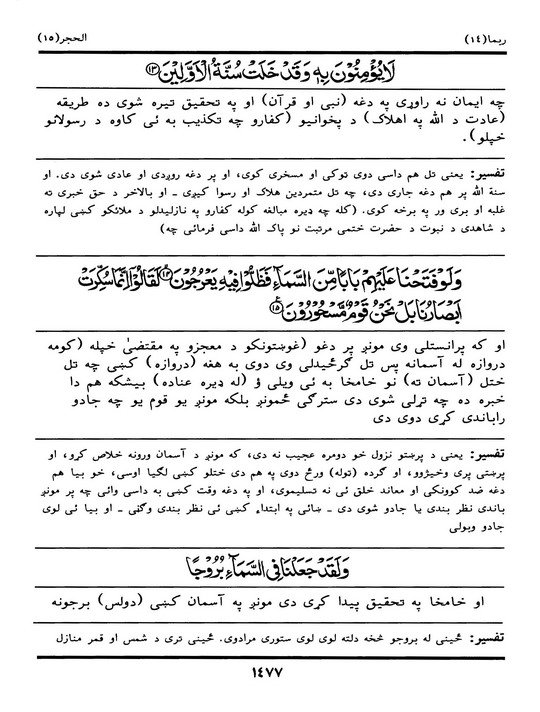 ربما(١٤) الحجر(١٥)
لَا يُؤْمِنُوْنَ بِهٖ وَقَدْ خَلَتْ سُنَّةُ الْاَوَّلِيْنَ ﴿١٣﴾
چه ايمان نه راوړي په دغه (نبی او قرآن) او په تحقيق تيره شوى ده طريقه
(عادت د الله په اهلاک) د پخوانيو (کفارو چه تکذيب به ئى کاوه د رسولانو
خپلو).
تفسير: يعنى تل هم داسى دوى ټوکى او مسخرى کوى، او پر دغه روږدى او عادى شوى دى. او
سنة الله پر هم دغه جارى دى، چه تل متمردين هلاک او رسوا کيږى ـ او بالاخر د حق خبرى ته
غلبه او برى ور په برخه کوى. (کله چه ډيره مبالغه کوله کفارو په نازليدلو د ملائکو کښى لپاره
د شاهدى د نبوت د حضرت ختمى مرتبت نو پاک الله داسى فرمائى چه)
وَلَوْ فَتَحْنَا عَلَيْهِمْ بَابًا مِّنَ السَّمَآءِ فَظَلُّوْا فِيْهِ يَعْرُجُوْنَ ﴿١٤﴾ لَقَالُوْٓا اِنَّمَا سُكِّرَتْ
اَبْصَارُنَا بَلْ نَحْنُ قَوْمٌ مَّسْحُوْرُوْنَ ﴿١٥﴾
او که پرانستلى وى مونږ پر دغو (غوښتونکو د معجزو په مقتضىٰ خپله (کومه
دروازه له آسمانه پس تل گرځيدلى وى دوى به هغه (دروازه) کښى چه تل
ختل (آسمان ته) نو خامخا به ئى ويلى ؤ (له ډيره عناده) بيشکه هم دا
خبره ده چه تړلى شوى دى سترگى ځمونږ بلکه مونږ يو قوم يو چه جادو
راباندى کړى دوى دى
تفسير: يعنى د پرښتو نزول خو دومره عجيب نه دى، که مونږ د آسمان ورونه خلاص کړو، او
پرښتى پرى وخيژوو، او گرده (ټوله) ورځ دوى په هم دى ختلو کښى لگيا اوسى، خو بيا هم
دغه ضد کوونکى او معاند خلق ئى نه تسليموى، او په دغه وقت کښى به داسى وائى چه پر مونږ
باندى نظر بندى يا جادو شوى دى ـ ښائى په ابتداء کښى ئى نظر بندى وگڼى ـ او بيا ئى لوى
جادو وبولى
وَلَقَدْ جَعَلْنَا فِى السَّمَآءِ بُرُوْجًا
او خامخا په تحقيق پيدا کړى دى مونږ په آسمان کښى (دولس) برجونه
تفسير: ځينى له بروجو څخه دلته لوى لوى ستورى مرادوى. ځينى ترى د شمس او قمر منازل
١٤٧٧